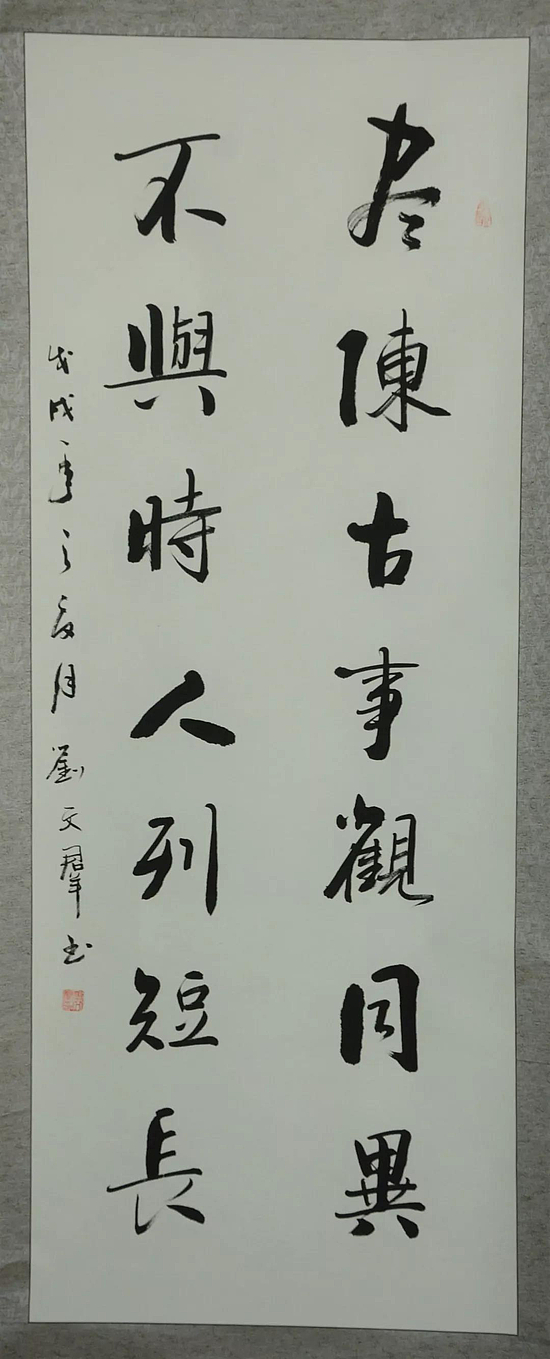 尽陳古事觀同異
不與時人列短長
戊戌年之夏月劉文羣书